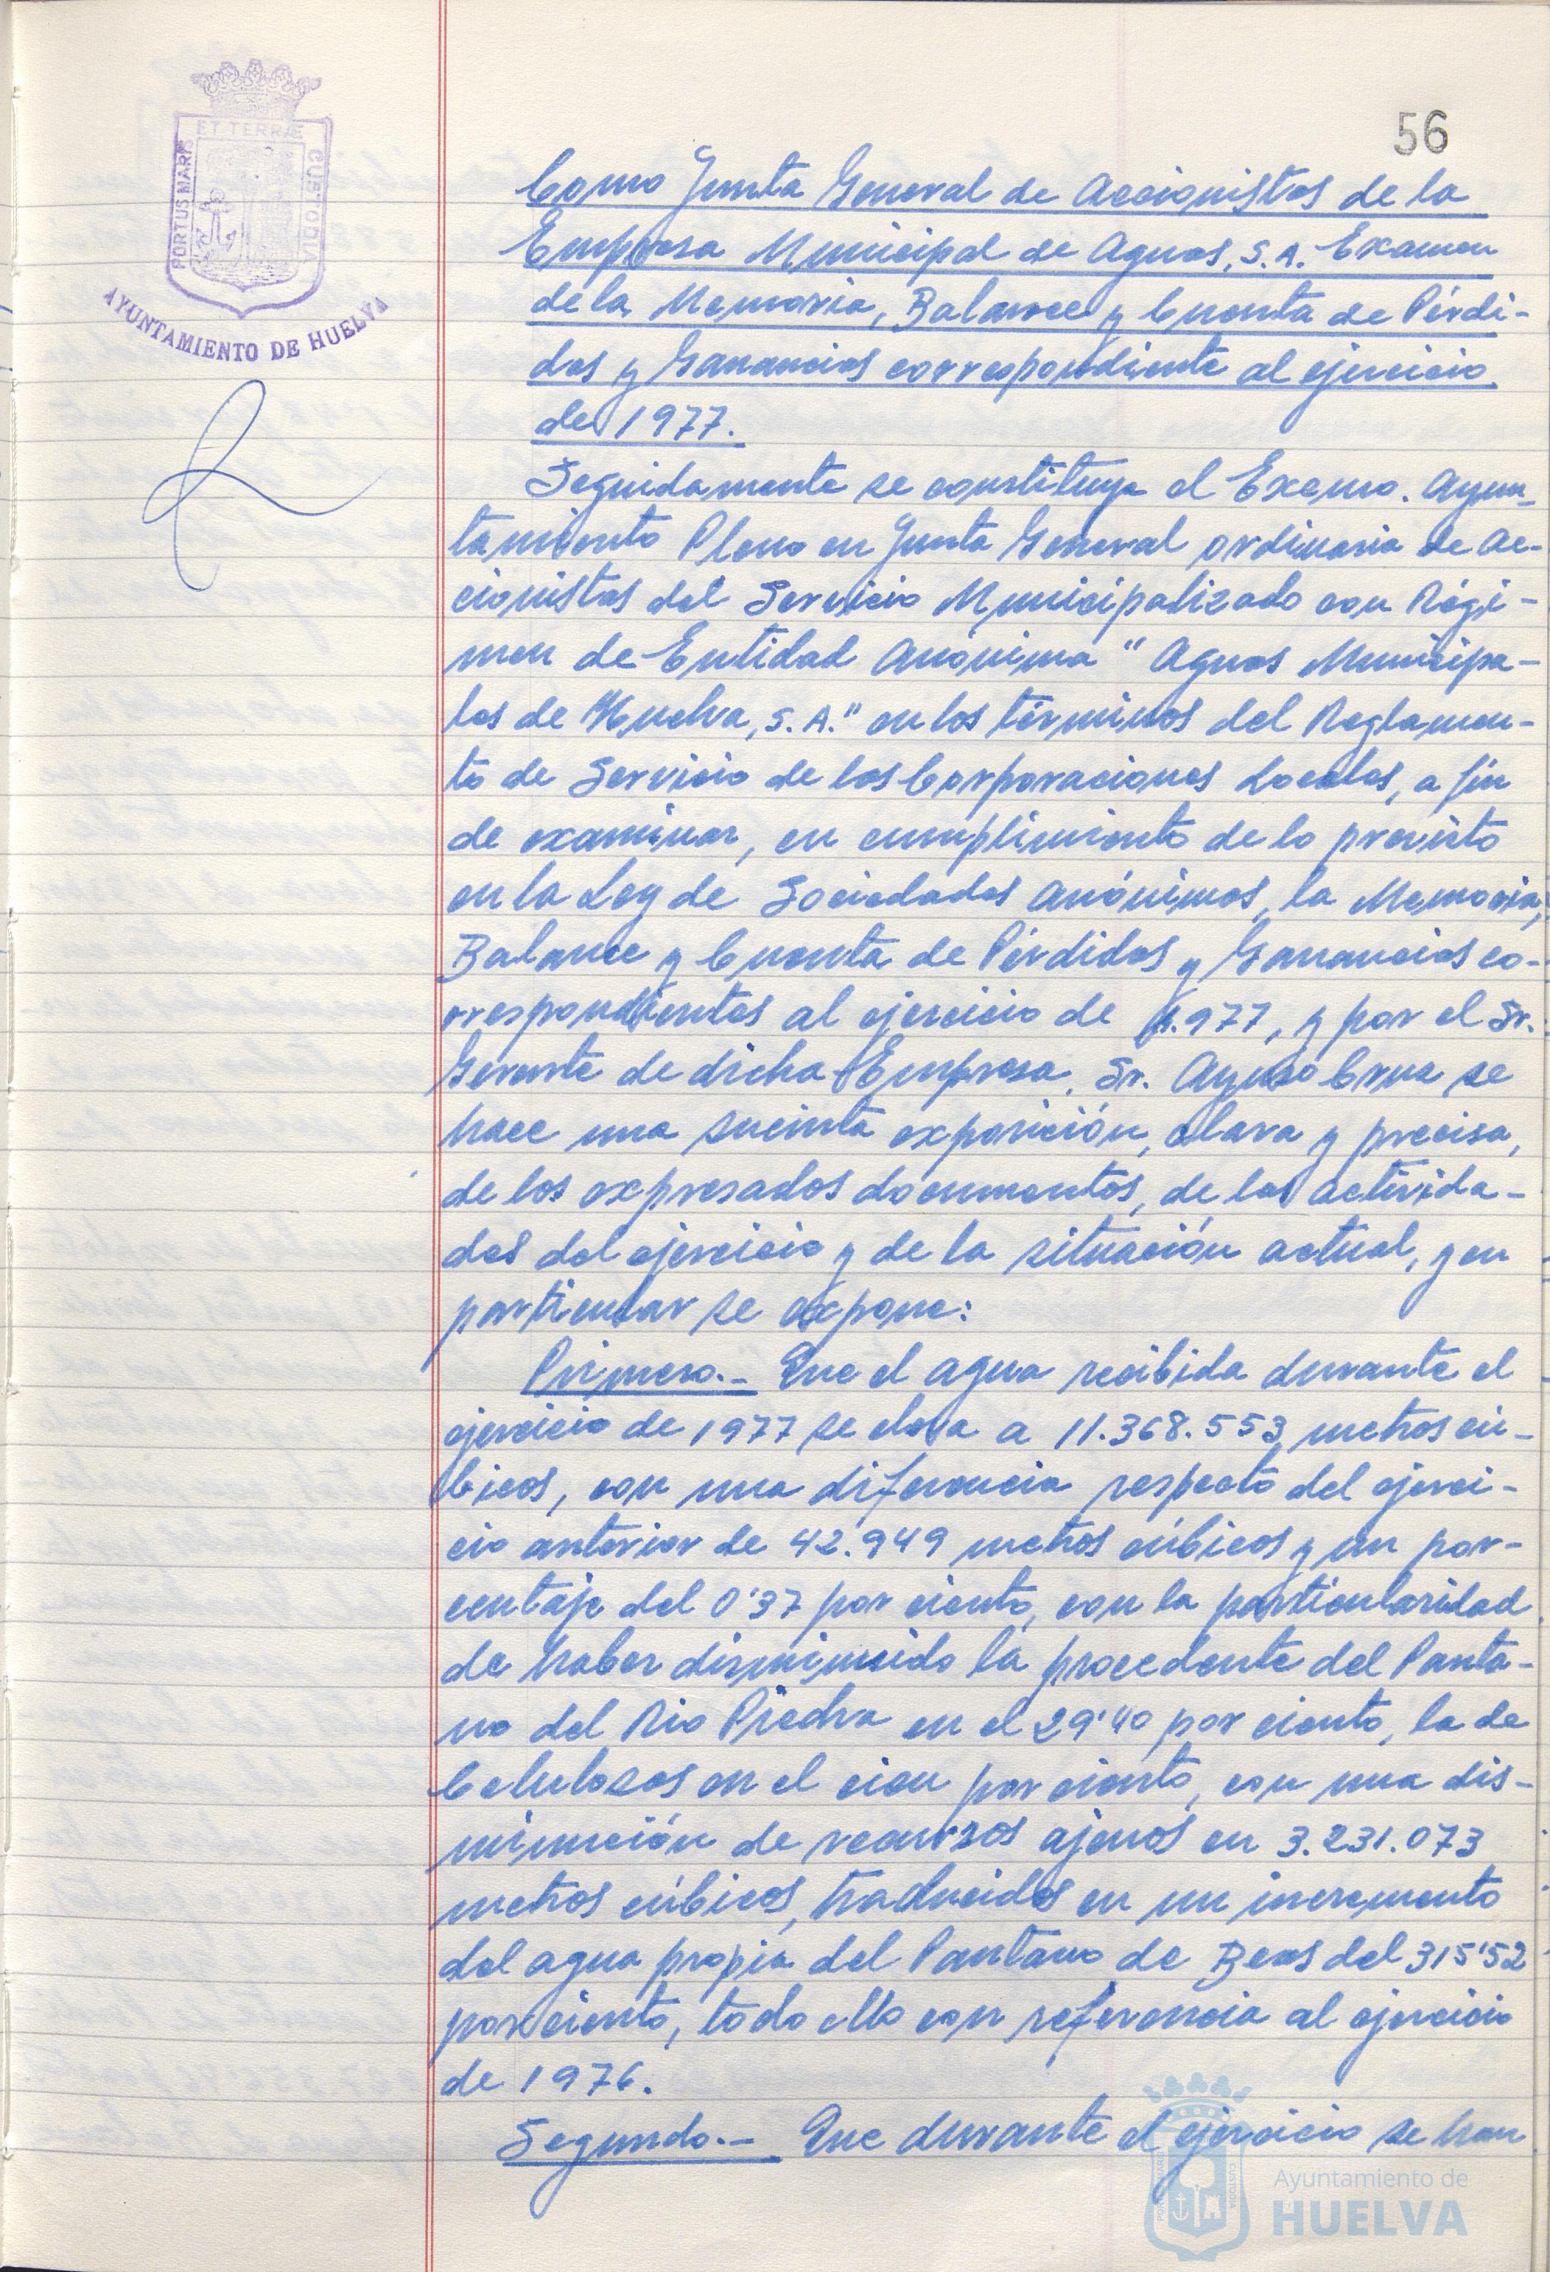 56
ET TERRÆ
PORTUS MARIS
CUSTODIA
AYUNTAMIENTO DE HUELVA
Como Junta General de Accionistas de la
Empresa Municipal de Aguas, S.A. Examen
de la Memoria, Balance y Cuenta de Pérdi-
das y Ganancias correspondiente al ejercicio
de 1977.
Seguidamente se constituye el Excmo. Ayun-
tamiento Pleno en Junta General ordinaria de Ac-
cionistas del Servicio Municipalizado con Régi-
men de Entidad Anónima "Aguas Municipa-
les de Huelva, S.A." en los términos del Reglamen-
to de Servicio de las Corporaciones Locales, a fin
de examinar, en cumplimiento de lo previsto
en la Ley de Sociedades Anónimas, la Memoria,
Balance y Cuenta de Pérdidas y Ganancias co-
rrespondientes al ejercicio de 1.977, y por el Sr.
Gerente de dicha Empresa, Sr. Ayuso Cruz se
hace una sucinta exposición, clara y precisa,
de los expresados documentos, de las activida-
des del ejercicio y de la situación actual, y en
particular se expone:
Primero.- Que el agua recibida durante el
ejercicio de 1977 se eleva a 11.368.553 metros cú-
bicos, con una diferencia respecto del ejerci-
cio anterior de 42.949 metros cúbicos y un por-
centaje del 0'37 por ciento, con la particularidad
de haber disminuido la procedente del Panta-
no del Rio Piedra en el 29'40 por ciento, la de
Celulosas en el cien por ciento, con una dis-
minución de recursos ajenos en 3.231.073
metros cúbicos, traducidos en un incremento
del agua propia del Pantano de Beas del 315'52
por ciento, todo ello con referencia al ejercicio
de 1976.
Segundo.- Que durante el ejercicio se han
Ayuntamiento de
HUELVA